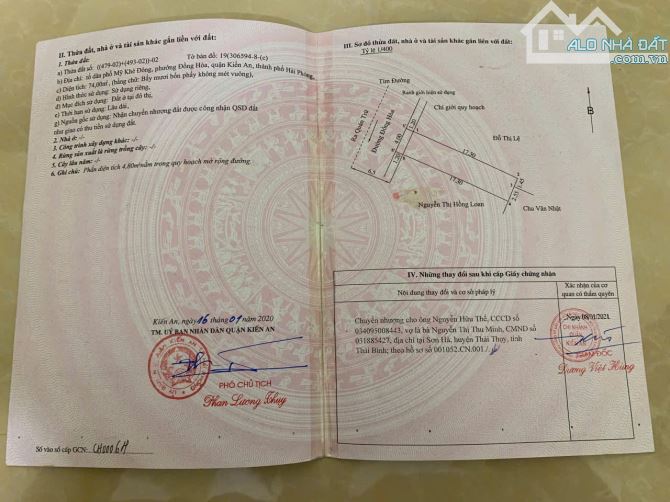 II. Thửa đất, nhà ở và tài sản khác gắn liền với đất:
1. Thửa đất:
a) Thửa đất số: ((479-02)+(493-02))-02 Tờ bản đồ: 19(306594-8-(c)
b) Địa chỉ: tổ dân phố Mỹ Khê Đông, phường Đồng Hòa, quận Kiến An, thành phố Hải Phòng.
c) Diện tích: 74,00m², (bằng chữ: Bảy mươi bốn phẩy không mét vuông),
d) Hình thức sử dụng: Sử dụng riêng,
đ) Mục đích sử dụng: Đất ở tại đô thị,
e) Thời hạn sử dụng: Lâu dài,
g) Nguồn gốc sử dụng: Nhận chuyển nhượng đất được công nhận QSD đất
như giao có thu tiền sử dụng đất.
2. Nhà ở: -/-
3. Công trình xây dựng khác: -/-
4. Rừng sản xuất là rừng trồng: -/-
5. Cây lâu năm: -/-
6. Ghi chú: Phần diện tích 4.80m²nằm trong quy hoạch mở rộng đường.
Kiến An, ngày 16 tháng 01 năm 2020
TM. UỶ BAN NHÂN DÂN QUẬN KIẾN AN
PHÓ CHỦ TỊCH
Phan Lương Thuy
Số vào sổ cấp GCN:
III. Sơ đồ thửa đất, nhà ở và tài sản khác gắn liền với đất:
Tỷ lệ 1/400
ALO NHÀ ĐẤT
Tim Đường
Ranh giới hiện sử dụng
Chỉ giới quy hoạch
B
Ra Quán Trữ
Đường Đồng Hòa
4.00
1.20
1.20
6.5
Đỗ Thị Lệ
17.30
17.30
1.45
2.55
Nguyễn Thị Hồng Loan
Chu Văn Nhật
IV. Những thay đổi sau khi cấp Giấy chứng nhận
Nội dung thay đổi và cơ sở pháp lý
Xác nhận của cơ
quan có thẩm quyền
Chuyển nhượng cho ông Nguyễn Hữu Thể, CCCD số
034095008443, vợ là bà Nguyễn Thị Thu Minh, CMND số
031885427, địa chỉ tại Sơn Hà, huyện Thái Thụy, tỉnh
Thái Bình; theo hồ sơ số 001052.CN.001./.
Ngày 08/01/2021
CHI NHÁNH
QUẬN
KIẾN AN
GIÁM ĐỐC
Dương Việt Hùng